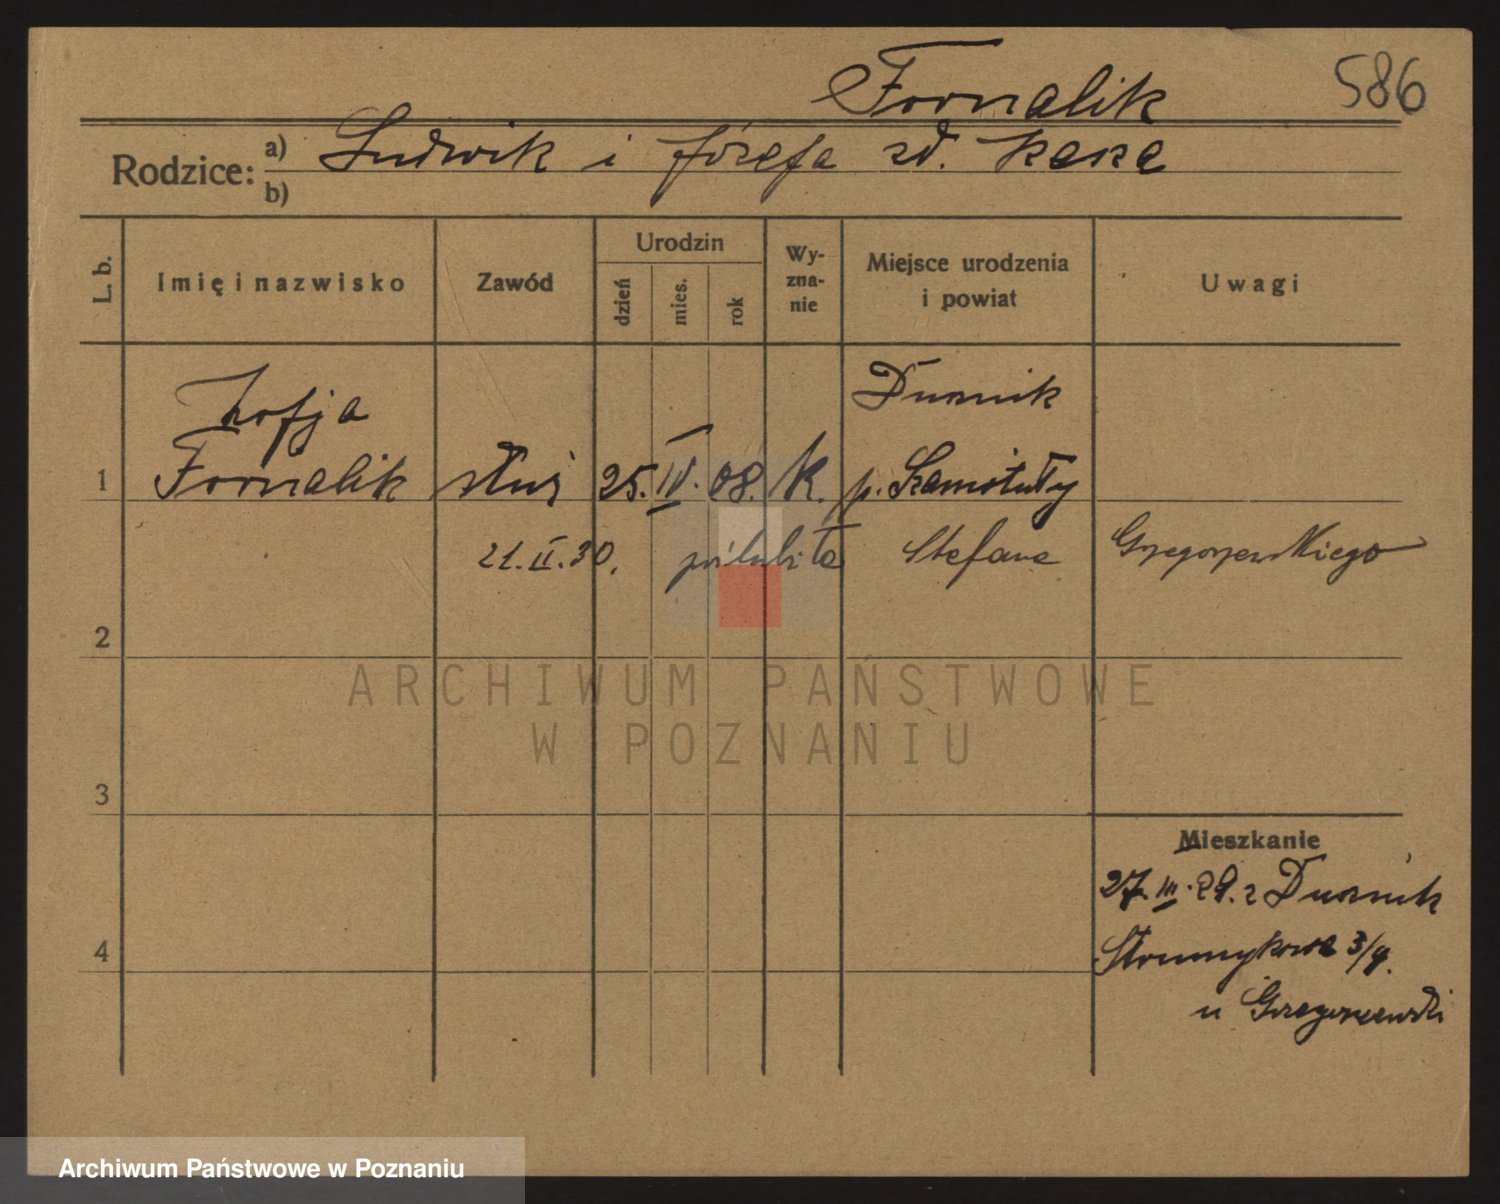 Fornalik 586
Rodzice: a) Ludwik i Józefa zd.
b)
L. b. Imię i nazwisko Zawód Urodzin dzień mies. rok Wy-zna-nie Miejsce urodzenia i powiat Uwagi
Zofja Duśnik
1 Fornalik służ 25. IV. 08. K. p. Szamotuły
21. II. 30. poślubiła Stefana Grzegorzewskiego
2
ARCHIWUM PAŃSTWOWE
W POZNANIU
3
Mieszkanie
27. III. 29. z Duśnik
4 3/4.
u Grzegorzewski
Archiwum Państwowe w Poznaniu